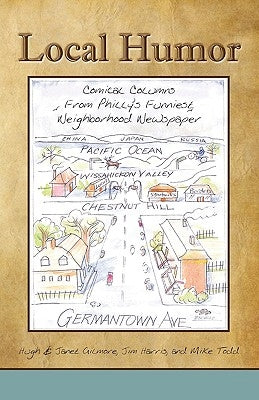 Local Humor
Comical Columns
From Philly's Funniest
Neighborhood Newspaper
CHINA JAPAN RUSSIA
PACIFIC OCEAN
WISSAHICKON VALLEY
Starbucks
Borders
CHESTNUT HILL
GERMANTOWN AVE.
Hugh & Janet Gilmore, Jim Harris, and Mike Todd